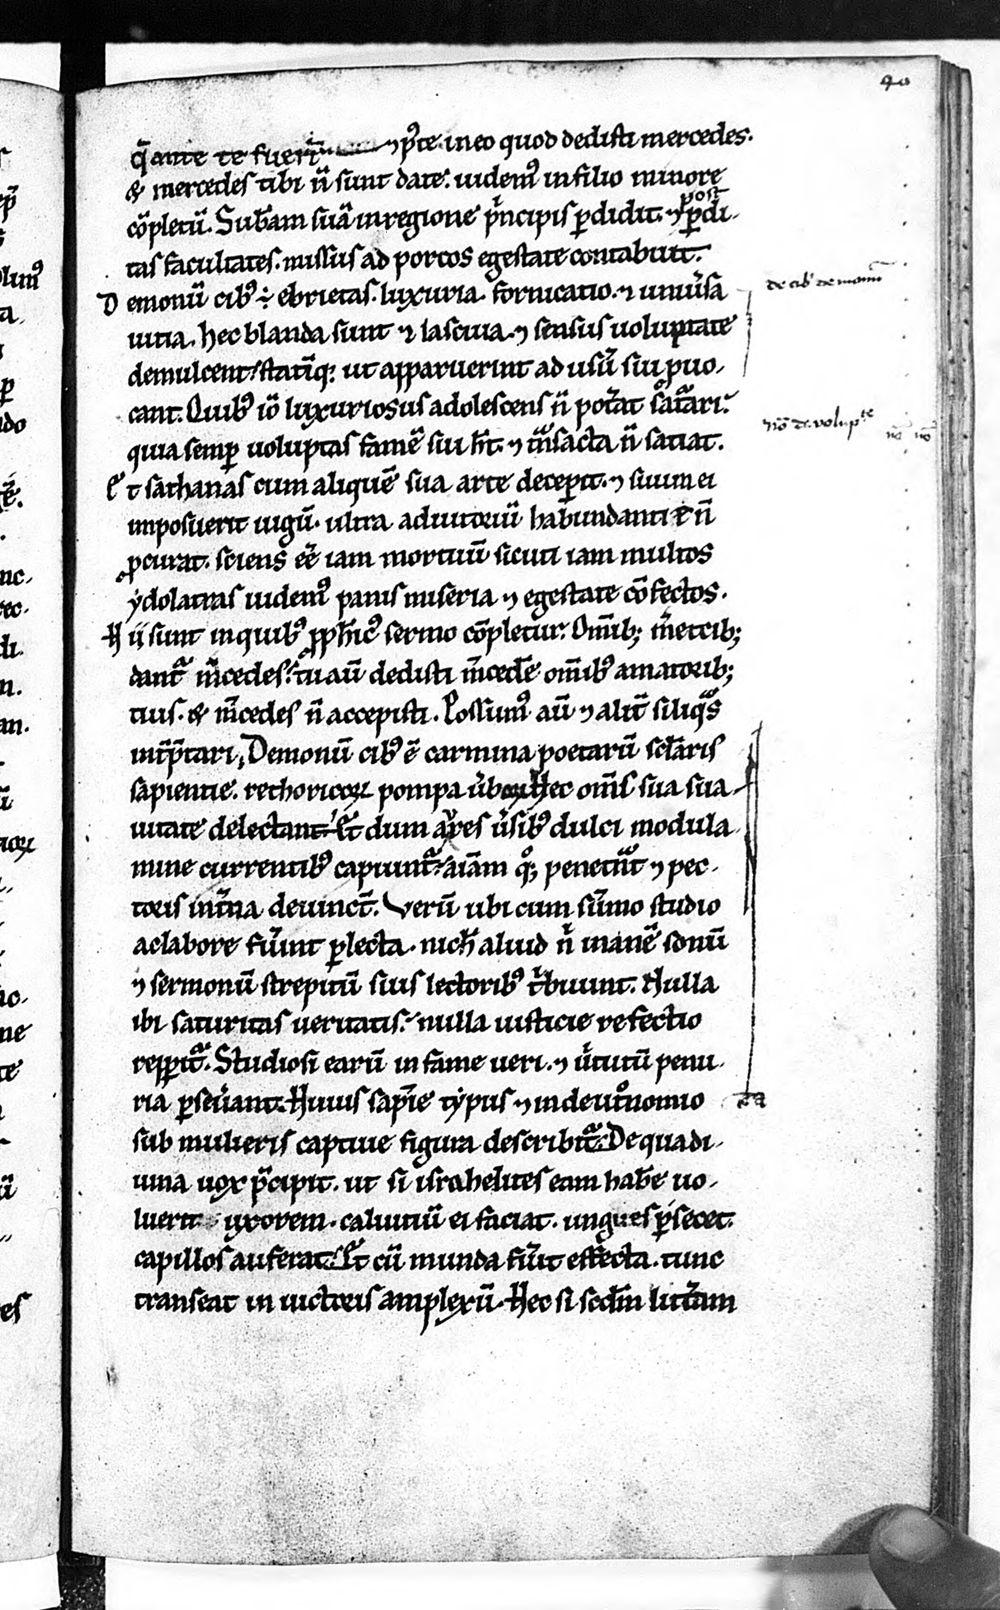 40
q̄ ante te fuer̄ ⁊ p̾te in eo quod dedisti mercedes.
& mercedes tibi n̄ sunt date. uidemꝰ in filio minore
cōpletū. Subam̄ suā in regione p̾ncipis ꝑdidit. ⁊ post ꝑdi-
tas facultates. missus ad porcos egestate contabuit.
Demonū cibꝰ ÷ ebrietas. luxuria. fornicatio. ⁊ uniũsa
de cibꝰ demonū
uitia. hec blanda sunt ⁊ lasciua. ⁊ sensus uoluptate
demulcent. statīq; ut apparuerint ad usū sui puo-
cant. Quibꝰ iō luxuriosus adolescens n̄ pot̾at sat̾ari.
nō de volupte
quia semꝑ uoluptas famē sui h̄t. ⁊ t̾nsacta n̄ satiat.
Et sathanas cum aliquē sua arte deceꝑit. ⁊ suum ei
imposuerit iugū. ultra ad uitiorū habundantiā n̄
ꝓcurat. sciens eē iam mortuū sicuti iam multos
ydolatras uidemꝰ panis miseria ⁊ egestate cōfectos.
Hii sunt in quibꝰ ꝓph̄icꝰ sermo cōpletur. Om̄ib; m̄etrib;
dant̾ m̄cedes. tu aū dedisti m̄cedē om̄ibꝰ amatorib;
tuis. & m̄cedes n̄ accepisti. Possumꝰ aū ⁊ alit̄ siliq̾s
int̄p̄tari, Demonū cibꝰ ē carmina poetarū sc̄laris
sapientie. rethoricoꝝ pompa ũboꝝ Hec om̄s sua sua-
uitate delectant. Et dum aures ũsibꝰ dulci modula
mine currentibꝰ capiunt̾. aīam q̊; penet̾nt ⁊ pec-
toris int̾na deuinct̄. Verū ubi cum sūmo studio
ac labore fũint ꝑlecta. nich̄ aliud n̾ inanē sonū
⁊ sermonū strepitū suis lectoribꝰ t̾buunt. Nulla
ibi saturitas ueritatis. nulla iusticie refectio
reꝑit̾. Studiosi earū in fame ueri. ⁊ ũtutū penu-
ria ꝑseũant. Huius sap̄ie typus ⁊ in deut̾onomio
sub mulieris captiue figura describit̾. De qua di-
uina uox p̄cipit. ut si israhelites eam habe̅ uo-
luerit uxorem. caluitiū ei faciat. ungues p̾secet.
capillos auferat. Et cū munda fũit effecta. tunc
transeat in uictoris amplexū. Hec si sc̄dm̄ litt̾am